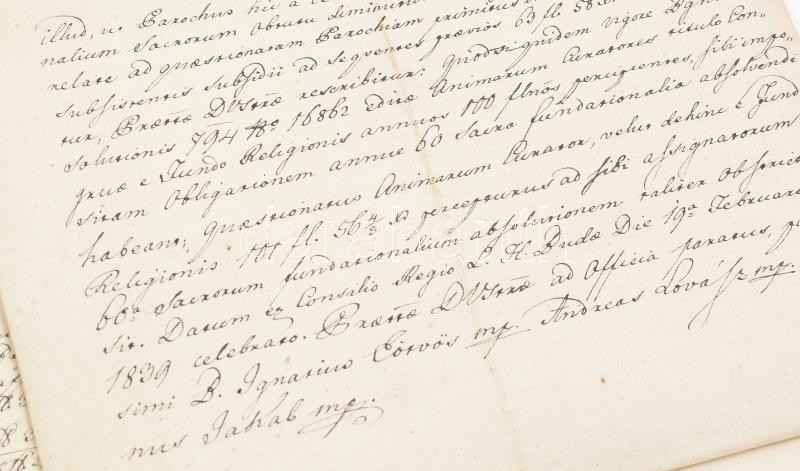 illud, ut Parochus hic a
nalium Sacrorum obrutu diminuti
relate ad quæstionatam Parochiam primitus
subsistentis subsidii ad sequentes prævios 63 fl. 58
tur, Prættæ DVstræ rescribitur: Quodsiquidem vigore
solutionis 794 No 16862 editæ Animarum Curatores titulo Con-
gruæ e Fundo Religionis annuos 100 flnos percipientes, sibi impo-
sitam Obligationem annue 60 Sacra fundationalia absolvendi
habeant; quæstionatus Animarum Curator, velut dehinc e Fund
Religionis 101 fl. 56 4/5 x percepturus ad sibi assignatorum
60a Sacrorum fundationalium absolutionem taliter obstrict
sit. Datum ex Consilio Regio L. H. Budæ Die 19a Februar
1839 celebrato. Prættæ DVstræ ad Officia paratus,
simi B. Ignatius Eötvös mp. Andreas Lovász mp.
nus Jakab mp.